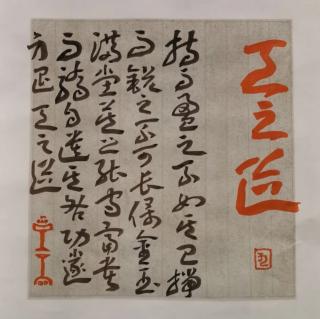 天之道
持而盈之不如其已揣
而銳之不可長保金玉
滿堂莫之能守富貴
而驕自遺其咎功遂
身退天之道